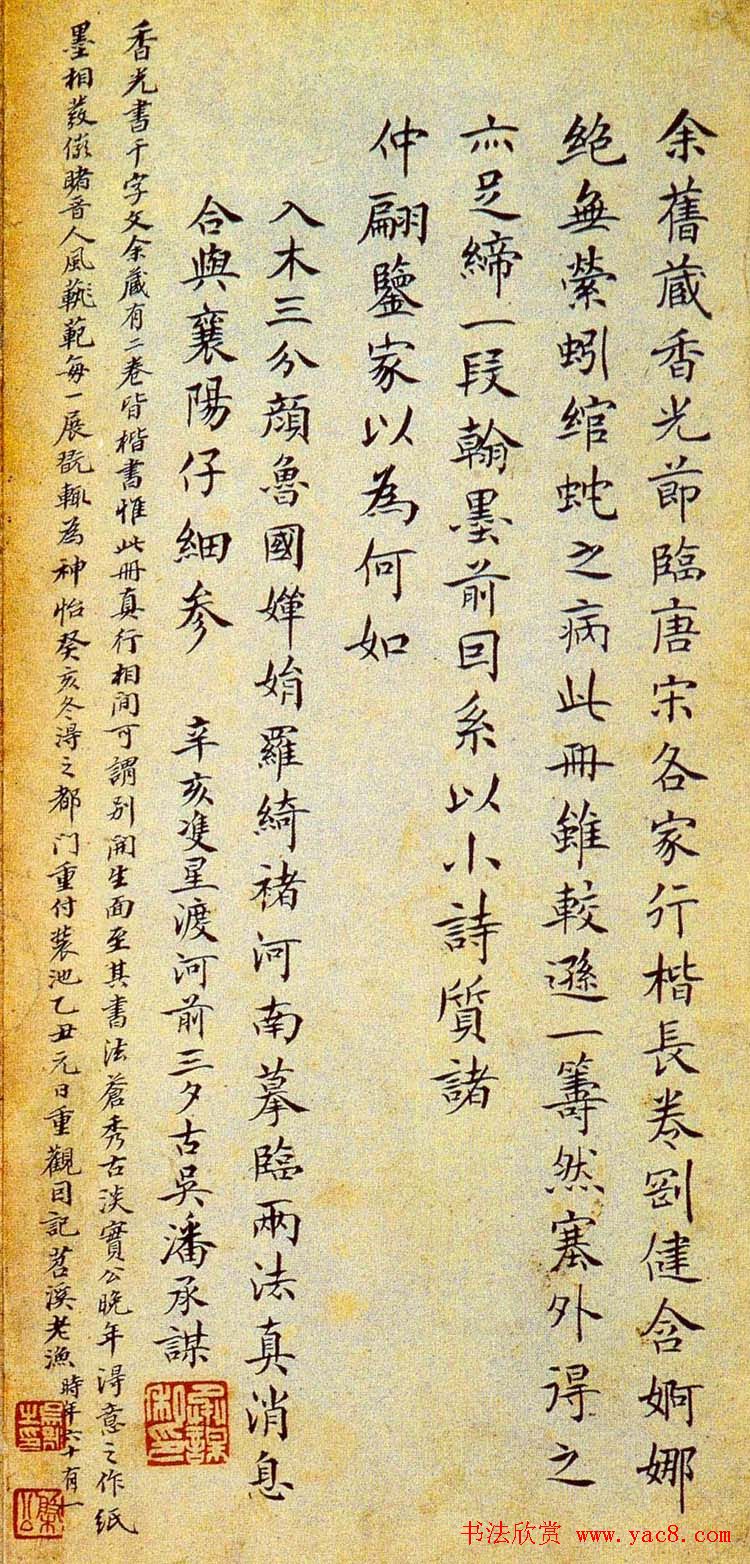 余舊藏香光節臨唐宋各家行楷長卷剛健含婀娜
絕無縈蚓綰蛇之病此冊雖較遜一籌然塞外得之
亦足締一段翰墨前因系以小詩質諸
仲翩鑒家以為何如
入木三分顏魯國嬋娟羅綺褚河南摹臨兩法真消息
合與襄陽仔細參 辛亥雙星渡河前三夕古吳潘承謀
香光書千字文余藏有二卷皆楷書惟此冊真行相間可謂別開生面至其書法蒼秀古淡實公晚年得意之作紙
墨相發儼睹晉人風範每一展玩輒為神怡癸亥冬得之都門重付裝池乙丑元日重觀因記苕溪老漁時年六十有一
书法欣赏 www.yac8.com